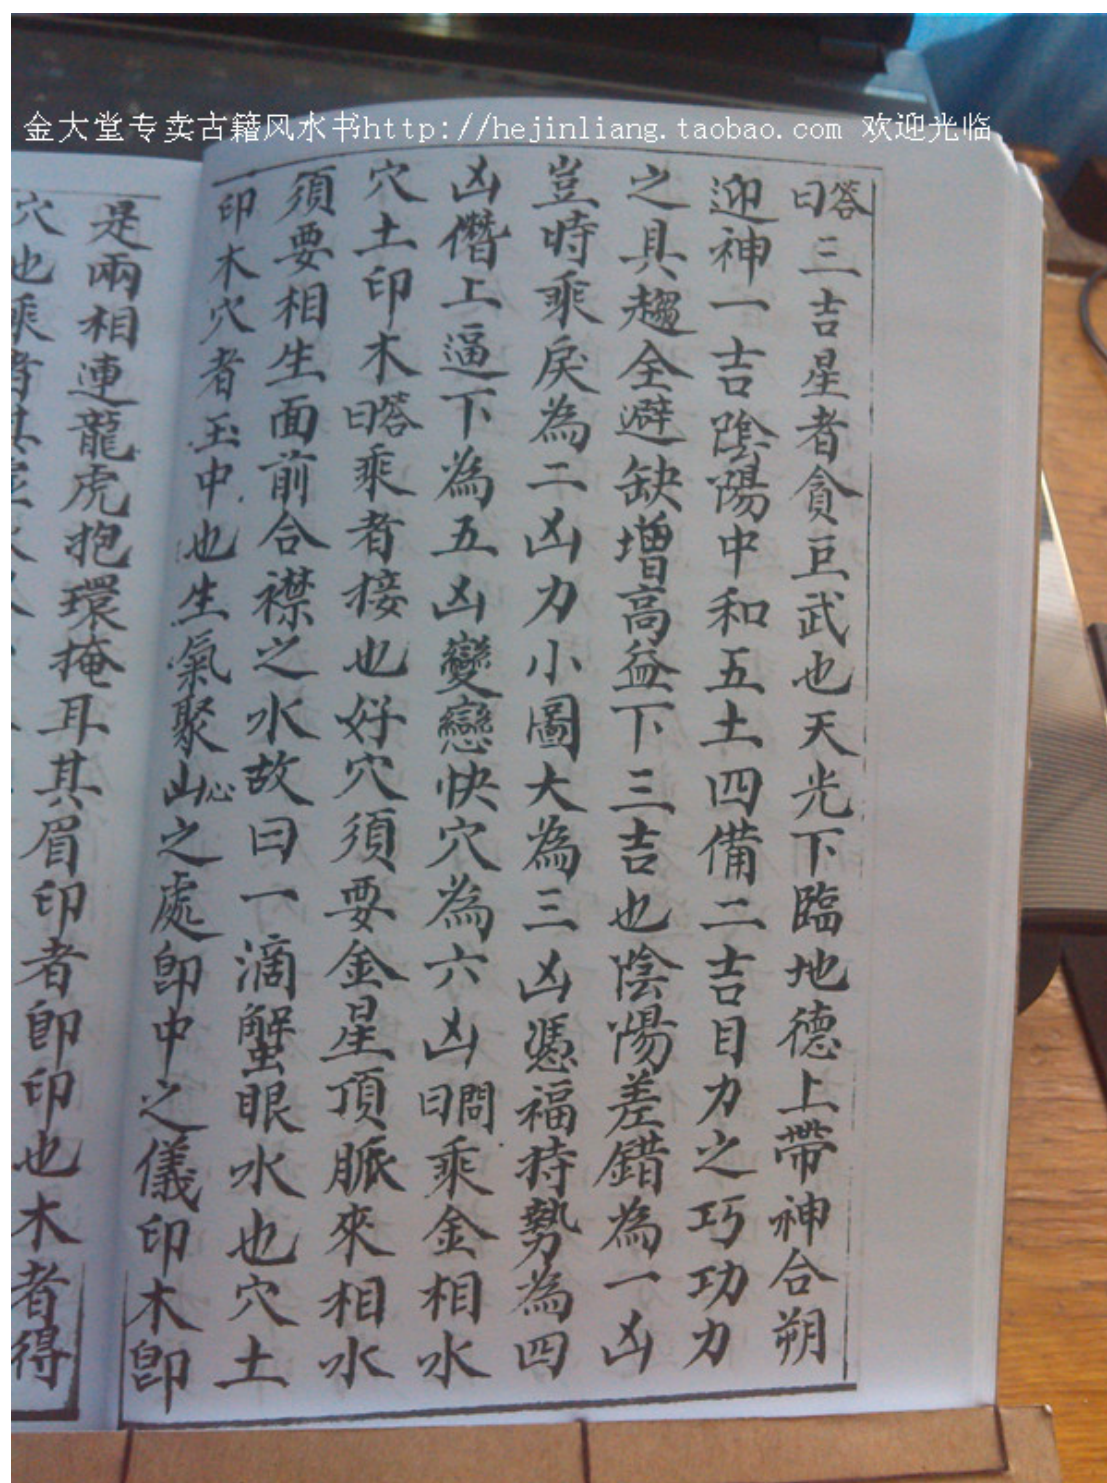 金大堂专卖古籍风水书http://hejinliang.taobao.com 欢迎光临
答曰三吉星者貪巨武也天光下臨地德上帶神合朔
迎神一吉陰陽中和五土四備二吉目力之巧功力
之具趨全避缺增高益下三吉也陰陽差錯為一凶
豈時乘戾為二凶力小圖大為三凶憑福持勢為四
凶僭上逼下為五凶變戀快穴為六凶問曰乘金相水
穴土印木答曰乘者接也好穴須要金星頂脈來相水
須要相生面前合襟之水故曰一滴蟹眼水也穴土
印木穴者玉中也生氣聚山心之處卽中之儀印木卽
是兩相連龍虎抱環掩耳其眉印者卽印也木者得
穴也乘者其